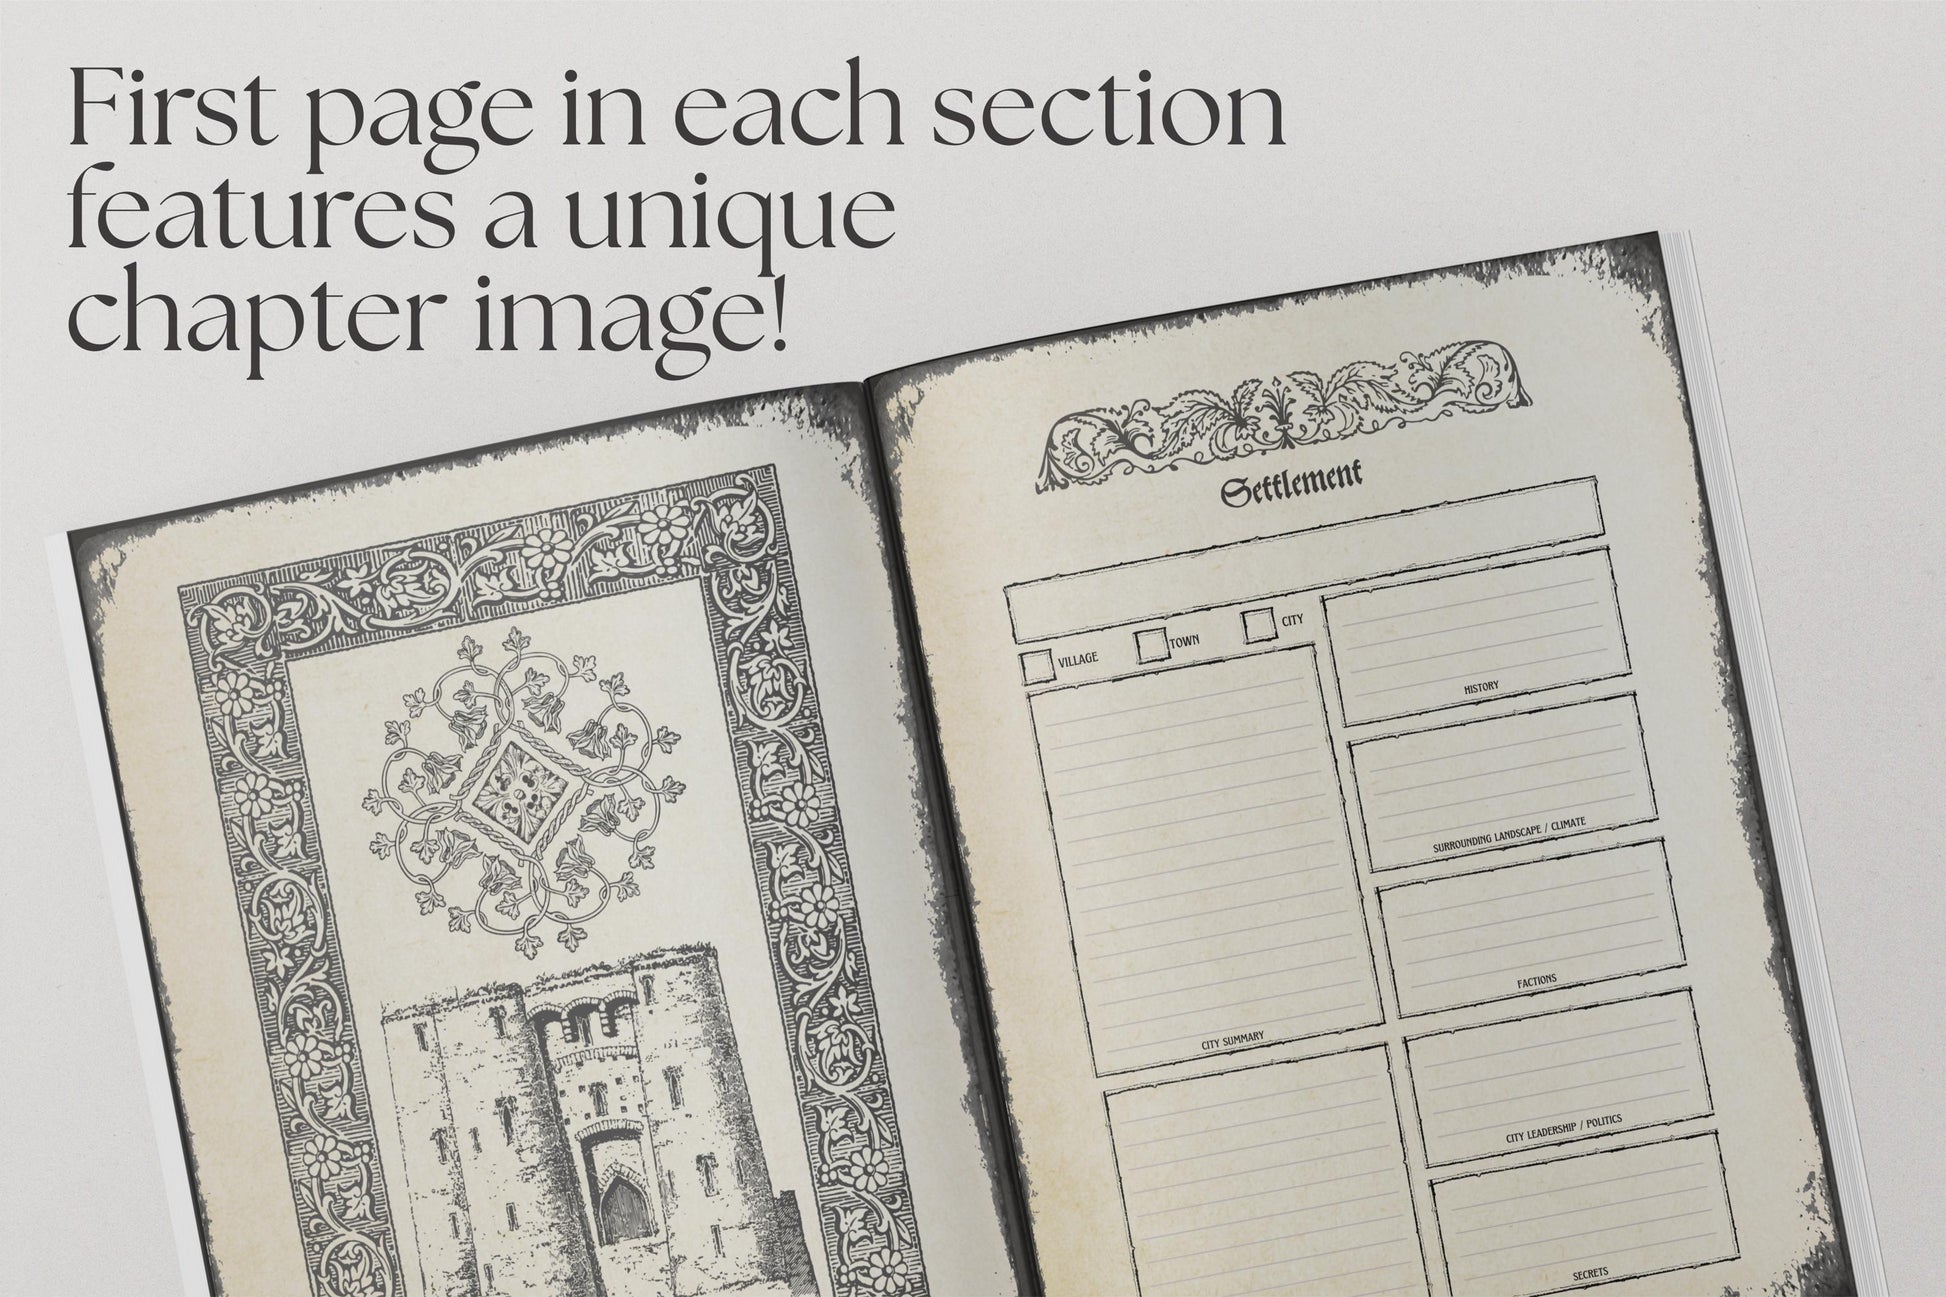 First page in each section
features a unique
chapter image!
Settlement
VILLAGE
TOWN
CITY
HISTORY
SURROUNDING LANDSCAPE / CLIMATE
FACTIONS
CITY SUMMARY
CITY LEADERSHIP / POLITICS
SECRETS